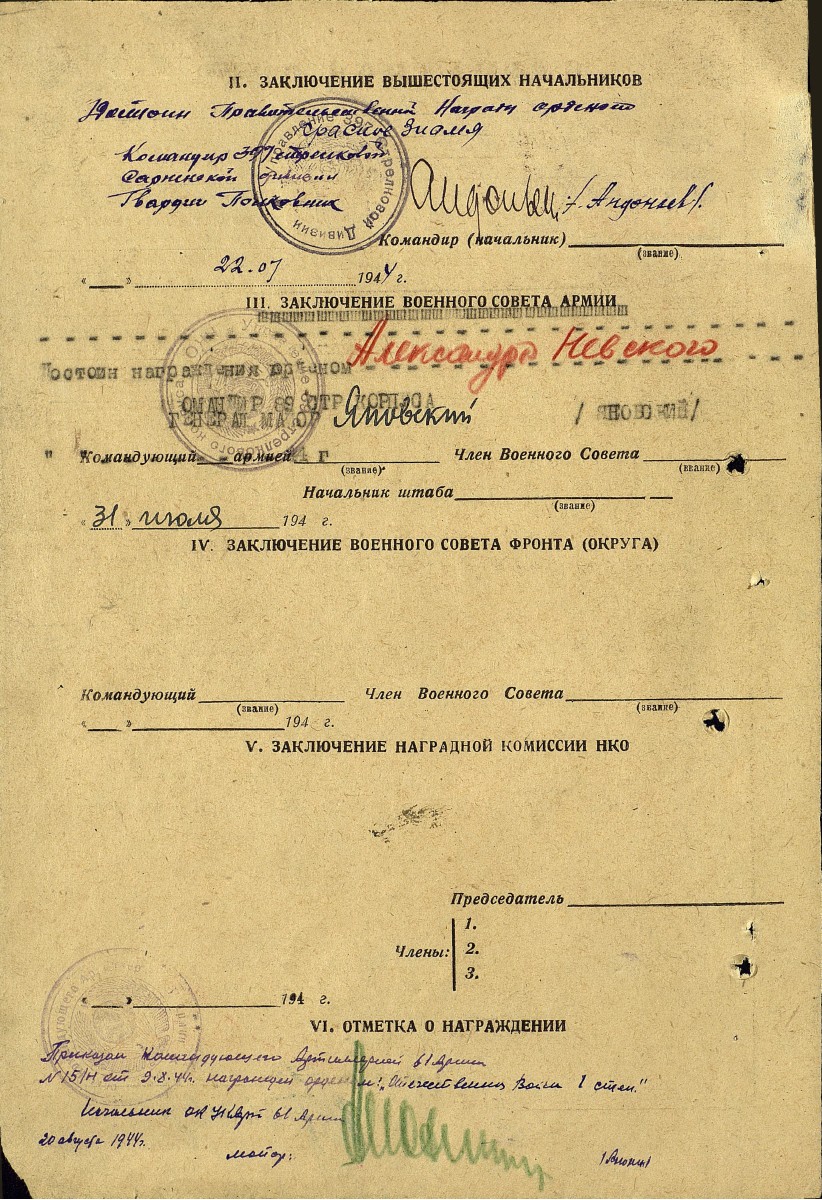 II. ЗАКЛЮЧЕНИЕ ВЫШЕСТОЯЩИХ НАЧАЛЬНИКОВ
Достоин Правительственной Награды орденом
Красное Знамя
Управление 397 Стрелковой Дивизии
Командир 397 стрелковой
Сарненской дивизии
Гвардии Полковник
/Андоньев/.
Командир (начальник)
(звание)
22.07 1944 г.
III. ЗАКЛЮЧЕНИЕ ВОЕННОГО СОВЕТА АРМИИ
Достоин награждения орденом Александра Невского
ОМАНДИР 89 СТР КОРПУСА
ГЕНЕРАЛ МАЙОР Яновский / ЯНОВСКИЙ/
Командующий армией 4 г Член Военного Совета
(звание) (звание)
Начальник штаба
(звание)
„31" июля 194 г.
IV. ЗАКЛЮЧЕНИЕ ВОЕННОГО СОВЕТА ФРОНТА (ОКРУГА)
Командующий Член Военного Совета
(звание) (звание)
„ " 194 г.
V. ЗАКЛЮЧЕНИЕ НАГРАДНОЙ КОМИССИИ НКО
Председатель
1.
Члены: 2.
3.
„ " 194 г.
VI. ОТМЕТКА О НАГРАЖДЕНИИ
Приказом Командующего Артиллерией 61 Армии
N 15/н от 9.8.44г. награжден орденом: „Отечественная Война 1 степ."
Начальник 61 Армии
20 августа 1944г.
майор: